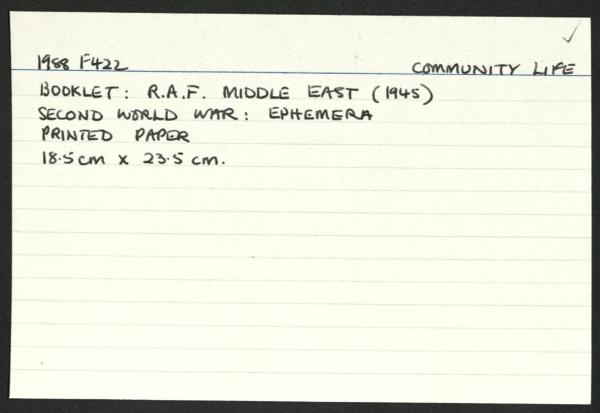 1988 F422 COMMUNITY LIFE
BOOKLET: R.A.F. MIDDLE EAST (1945)
SECOND WORLD WAR: EPHEMERA
PRINTED PAPER
18.5cm x 23.5cm.